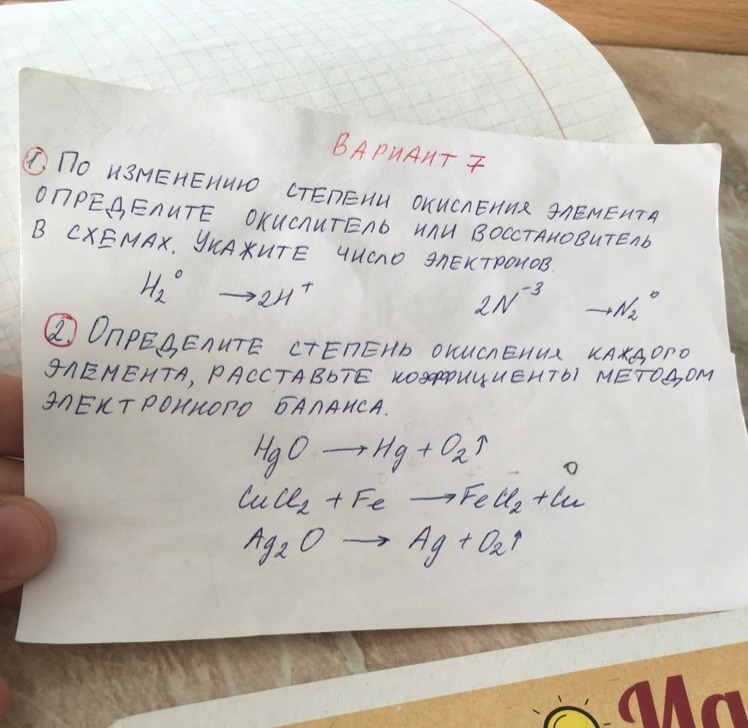 ВАРИАНТ 7
1. ПО ИЗМЕНЕНИЮ СТЕПЕНИ ОКИСЛЕНИЯ ЭЛЕМЕНТА
ОПРЕДЕЛИТЕ ОКИСЛИТЕЛЬ ИЛИ ВОССТАНОВИТЕЛЬ
В СХЕМАХ. УКАЖИТЕ ЧИСЛО ЭЛЕКТРОНОВ.
H₂⁰ → 2H⁺ 2N⁻³ → N₂⁰
2. ОПРЕДЕЛИТЕ СТЕПЕНЬ ОКИСЛЕНИЯ КАЖДОГО
ЭЛЕМЕНТА, РАССТАВЬТЕ КОЭФФИЦИЕНТЫ МЕТОДОМ
ЭЛЕКТРОННОГО БАЛАНСА.
HgO → Hg + O₂↑
CuCl₂ + Fe → FeCl₂ + Cu⁰
Ag₂O → Ag + O₂↑